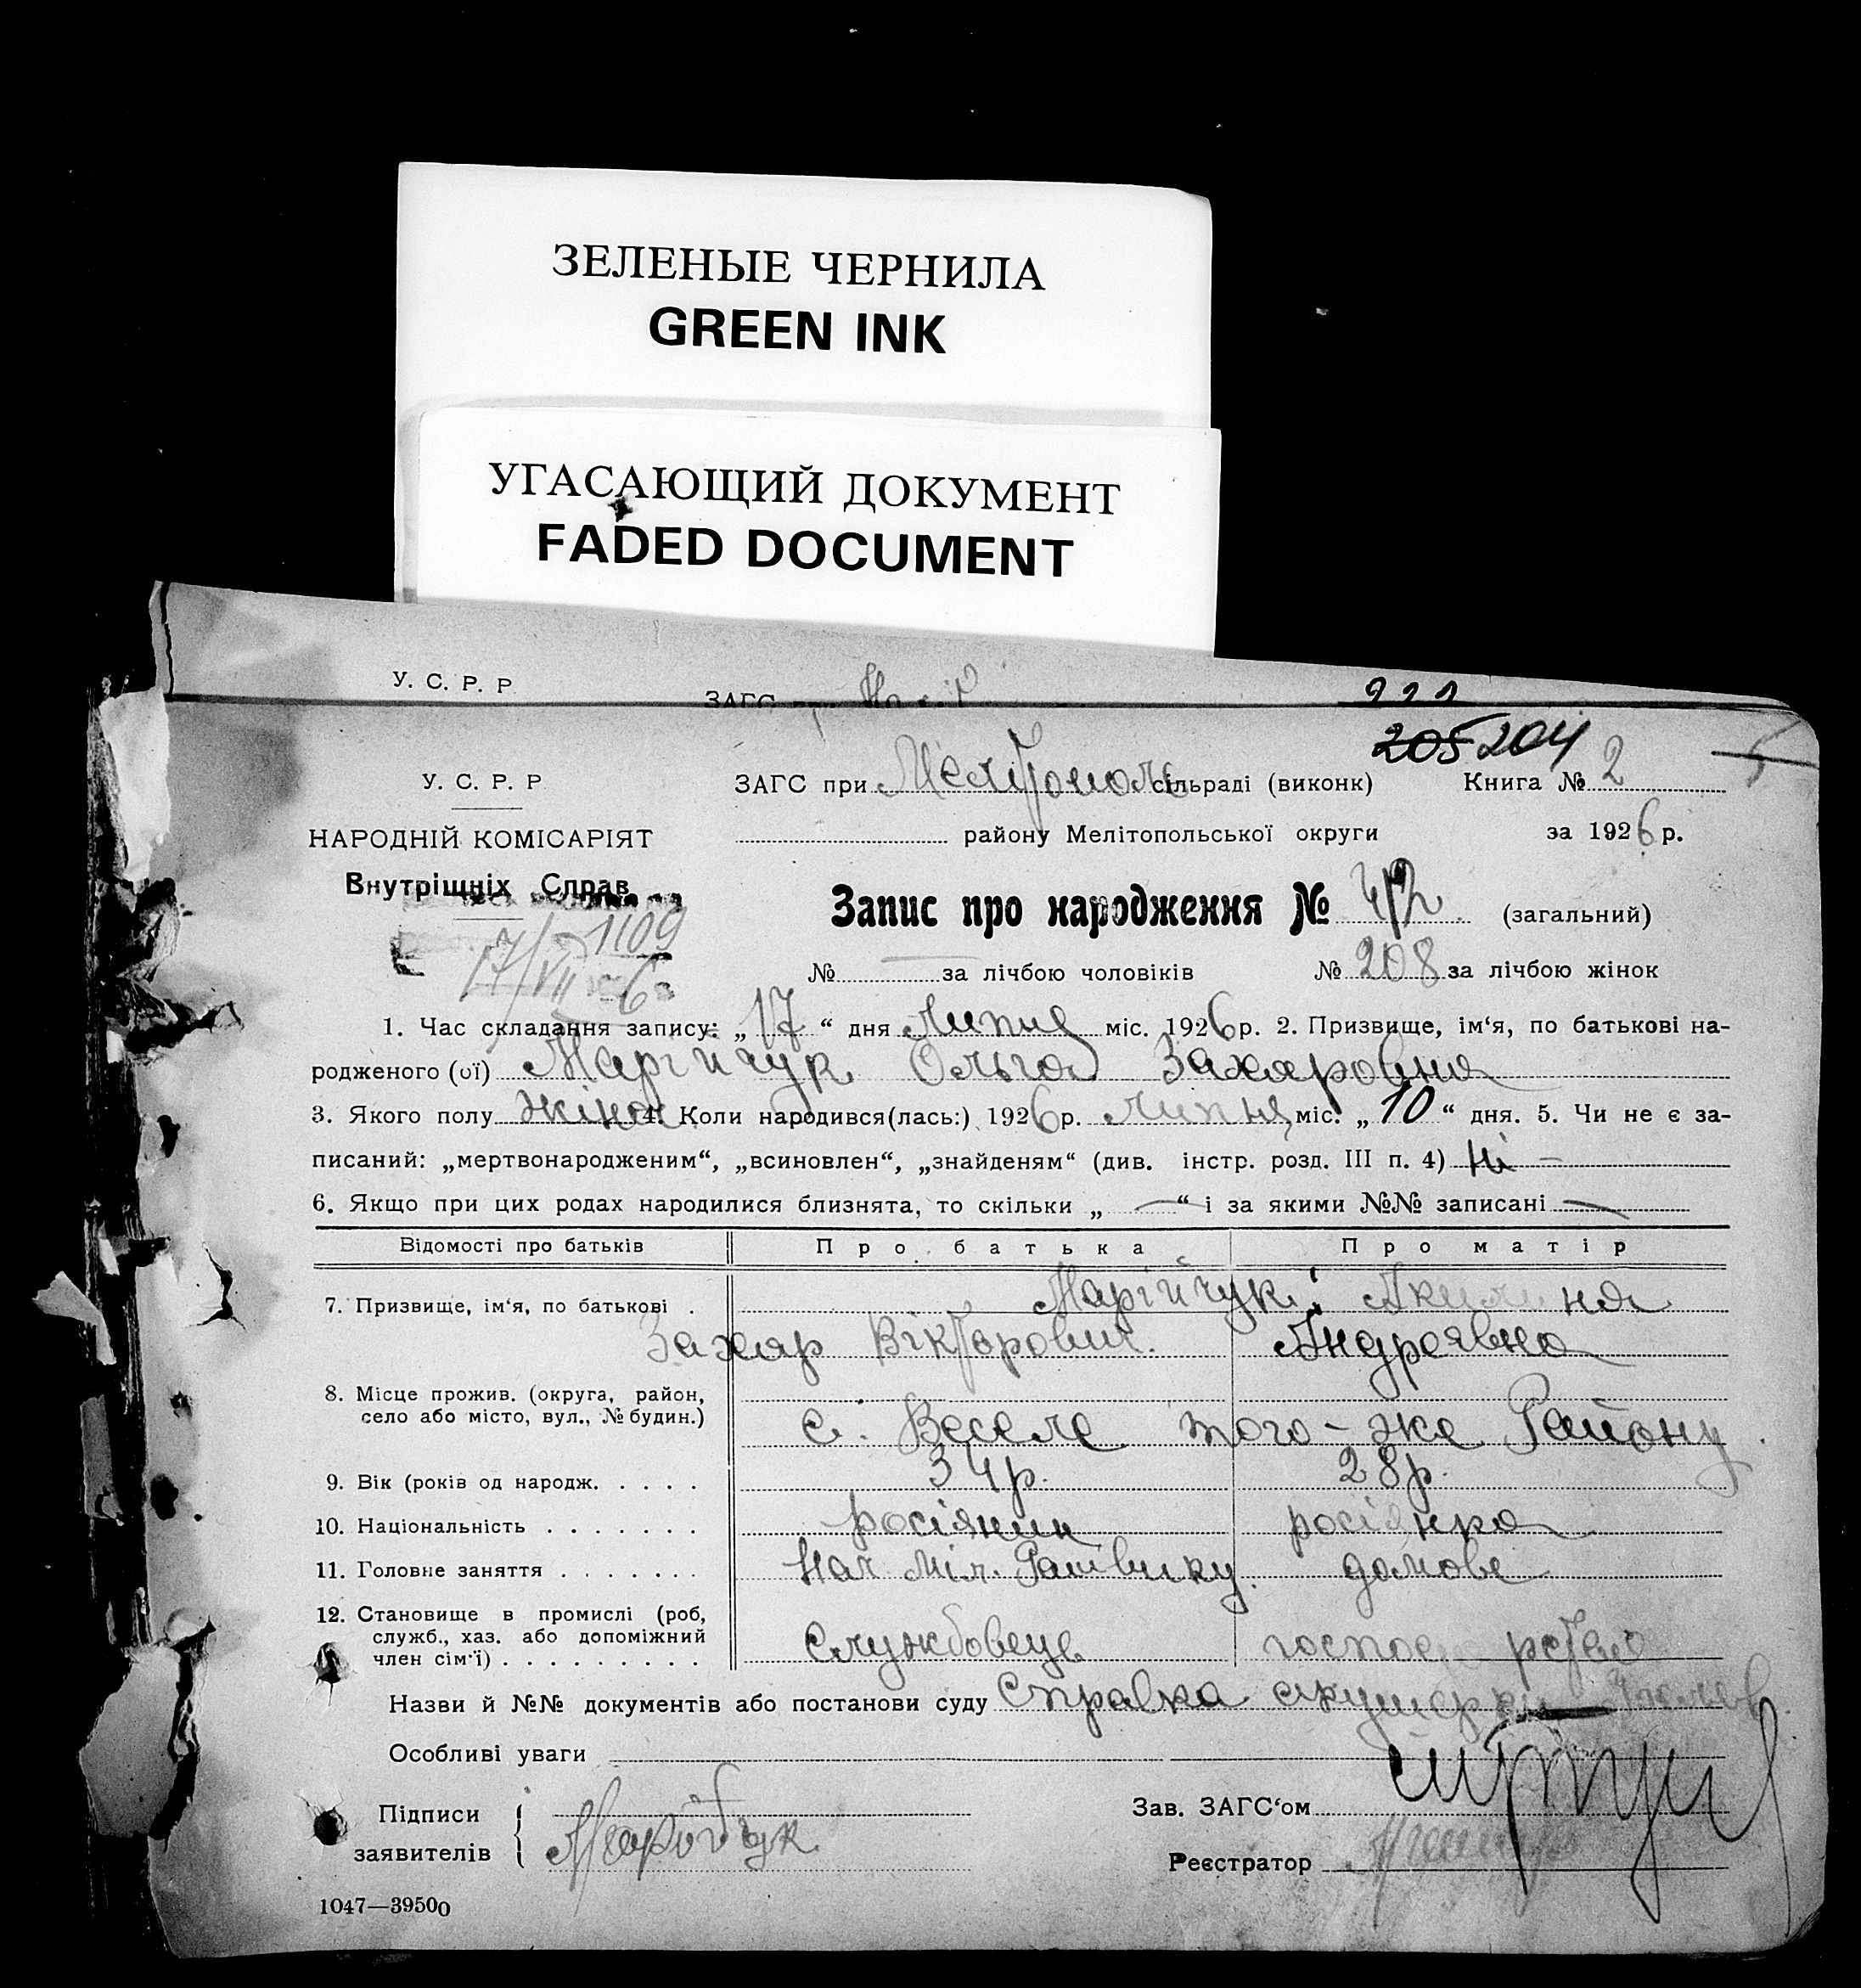 ЗЕЛЕНЫЕ ЧЕРНИЛА
GREEN INK
УГАСАЮЩИЙ ДОКУМЕНТ
FADED DOCUMENT
У. С. Р. Р
ЗАГС
221
205 204
У. С. Р. Р
ЗАГС при Мелітополь сільраді (виконк) Книга № 2
НАРОДНІЙ КОМІСАРІЯТ
району Мелітопольської округи за 1926 р.
Внутріщніх Справ
Запис про народження № 412 (загальний)
1109
17/VII-6
№ — за лічбою чоловіків № 208 за лічбою жінок
1. Час складання запису: „17“ дня Липня міс. 1926 р. 2. Призвище, ім‘я, по батькові на-
родженого (ої) Маргійчук Ольга Захаровна
3. Якого полу жіноч 4. Коли народився(лась:) 1926 р. Липня міс. „10“ дня. 5. Чи не є за-
писаний: „мертвонародженим“, „всиновлен“, „знайденям“ (див. інстр. розд. III п. 4) ні –
6. Якщо при цих родах народилися близнята, то скільки „—“ і за якими №№ записані —
Відомості про батьків Про батька Про матір
7. Призвище, ім‘я, по батькові . Маргійчук: Акилина
Захар Вікторович. Андреявна
8. Місце прожив. (округа, район,
село або місто, вул., № будин.) с. Веселе того-же Району
9. Вік (років од народж. . . . . 34 р. 28 р.
10. Національність . . . . . . . росіянин росіянка
11. Головне заняття . . . . . . . Нач міл. Райвику. домове
12. Становище в промислі (роб,
служб., хаз. або допоміжний
член сім‘ї) . . . . . . . . . Службовець господарство
Назви й №№ документів або постанови суду Справка акушерки
Особливі уваги
Підписи
заявителів Маргійчук
Зав. ЗАГС‘ом
Реєстратор
1047—39500